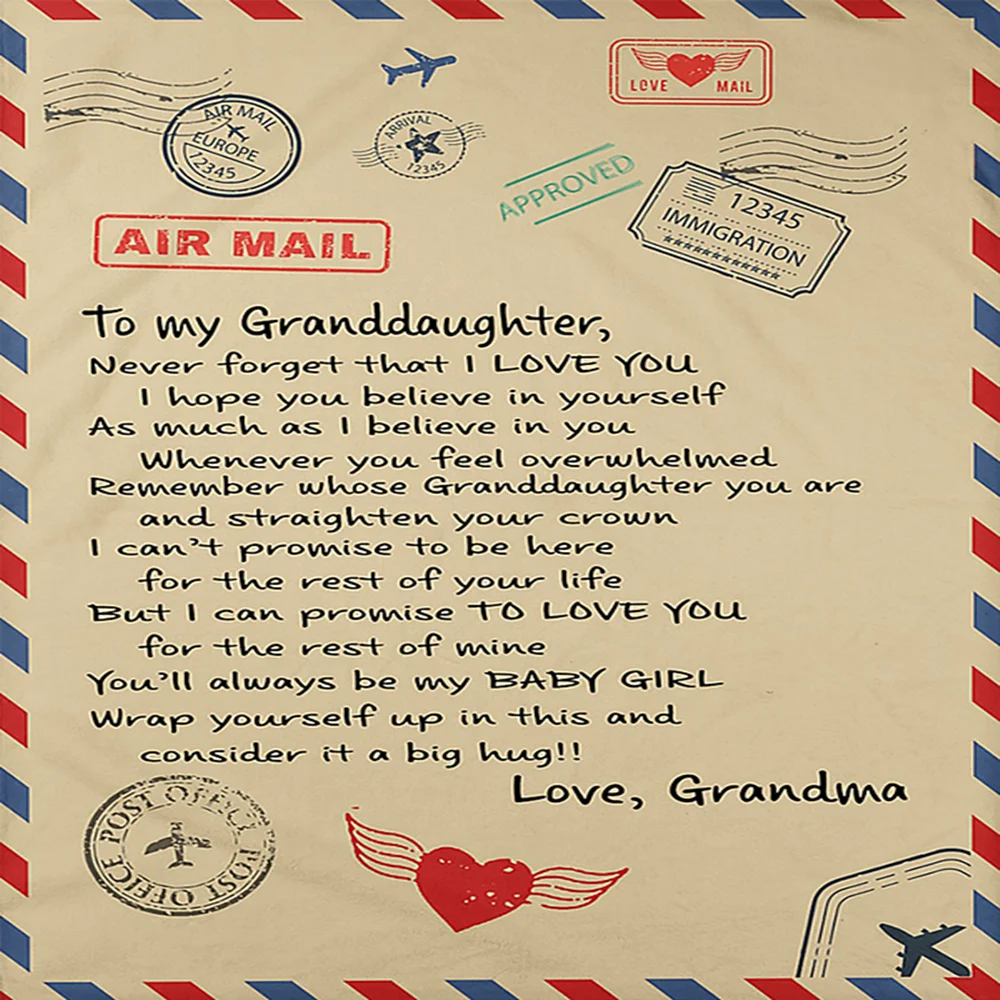 LOVE MAIL
AIR MAIL
EUROPE
12345
ARRIVAL
12345
APPROVED
12345
IMMIGRATION
AIR MAIL
To my Granddaughter,
Never forget that I LOVE YOU
I hope you believe in yourself
As much as I believe in you
Whenever you feel overwhelmed
Remember whose Granddaughter you are
and straighten your crown
I can't promise to be here
for the rest of your life
But I can promise TO LOVE YOU
for the rest of mine
You'll always be my BABY GIRL
Wrap yourself up in this and
consider it a big hug!!
Love, Grandma
POST OFFICE POST OFFICE